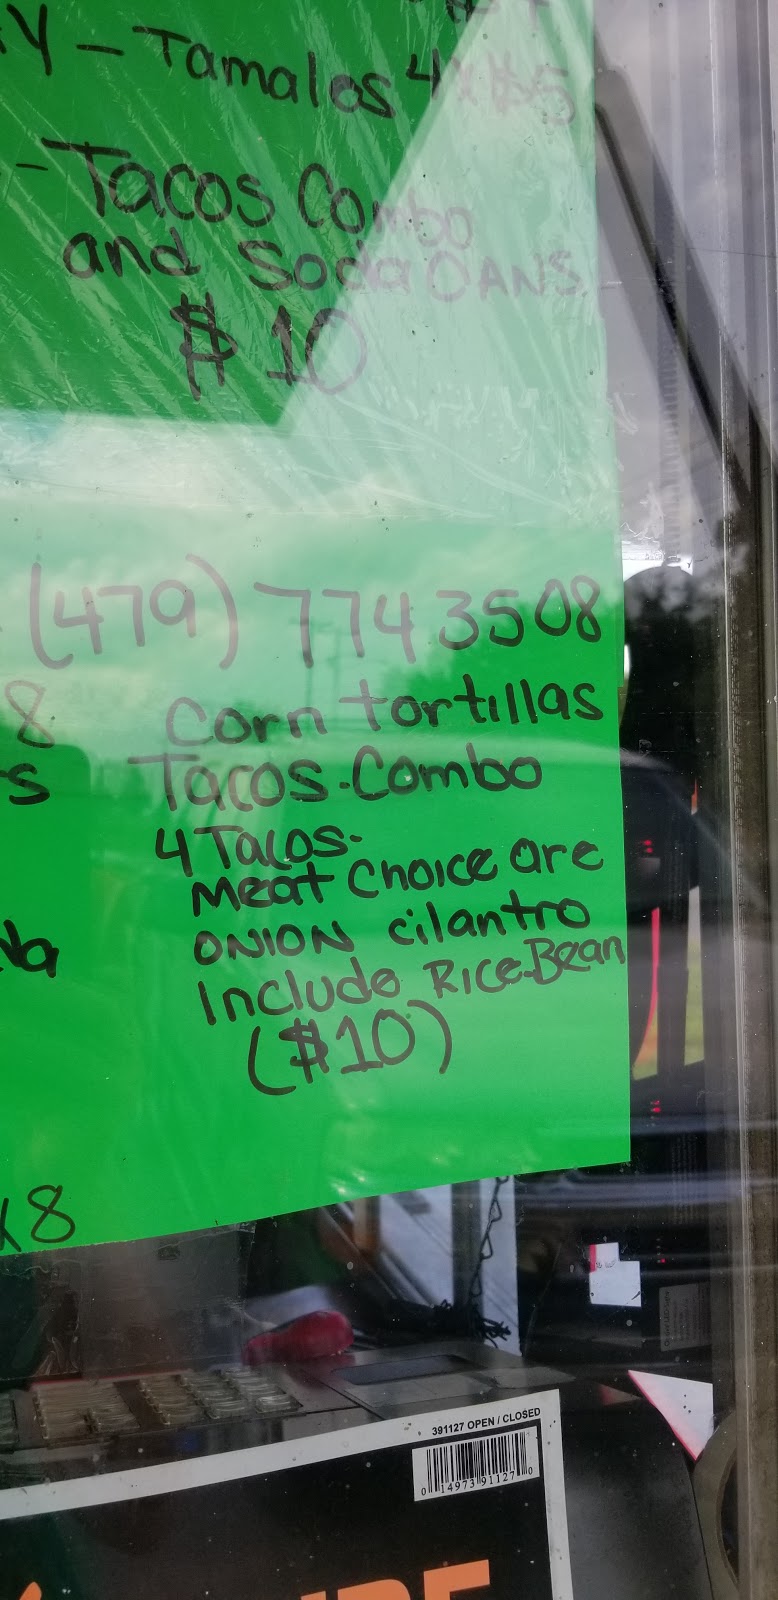 Y - Tamalos 4x$5
- Tacos Combo
and Soda CANS
$10
(479) 774 3508
8 corn tortillas
s Tacos-Combo
4 Tacos-
Meat Choice are
ONION cilantro
Include Rice-Bean
($10)
x8
391127 OPEN / CLOSED
0 14973 91127 0